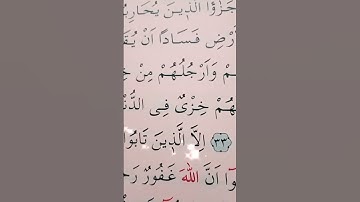 جَزٰٓؤُا الَّذ۪ينَ يُحَارِبُ
رْضِ فَسَادًا اَنْ يُقَ
مْ وَاَرْجُلُهُمْ مِنْ خِ
هُمْ خِزْيٌ فِي الدُّنْ
﴿٣٣﴾ اِلَّا الَّذ۪ينَ تَابُوا
وٓا اَنَّ اللّٰهَ غَفُورٌ رَح